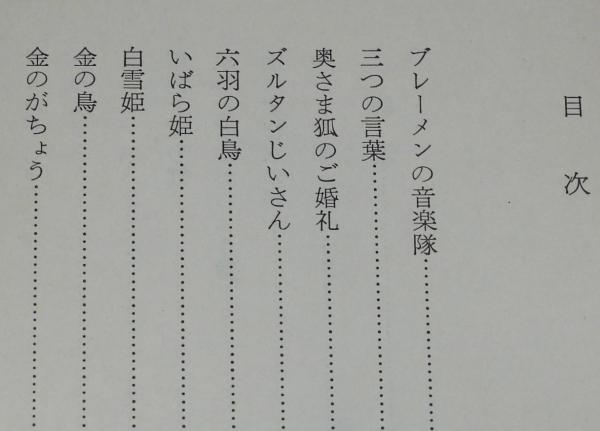 目次
ブレーメンの音楽隊
三つの言葉
奥さま狐のご婚礼
ズルタンじいさん
六羽の白鳥
いばら姫
白雪姫
金の鳥
金のがちょう